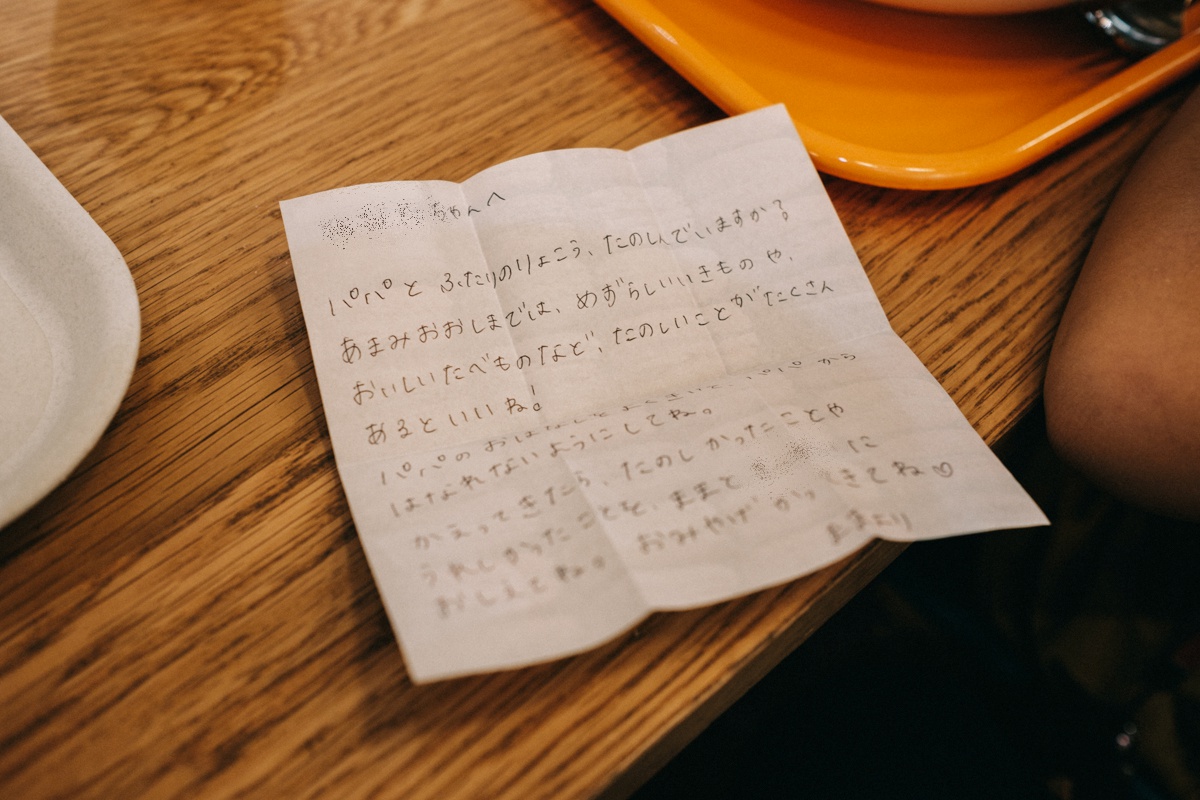 ちゃんへ
パパと ふたりのりょこう、たのしんでいますか?
あまみおおしまでは、めずらしいいきものや、
おいしいたべものなど、たのしいことがたくさん
あるといいね!
パパの おはなしをよくきいて、パパから
はなれないようにしてね。
かえってきたら、たのしかったことや
うれしかったことを、ままと に
おしえてね。 おみやげ かってきてね♡
ままより